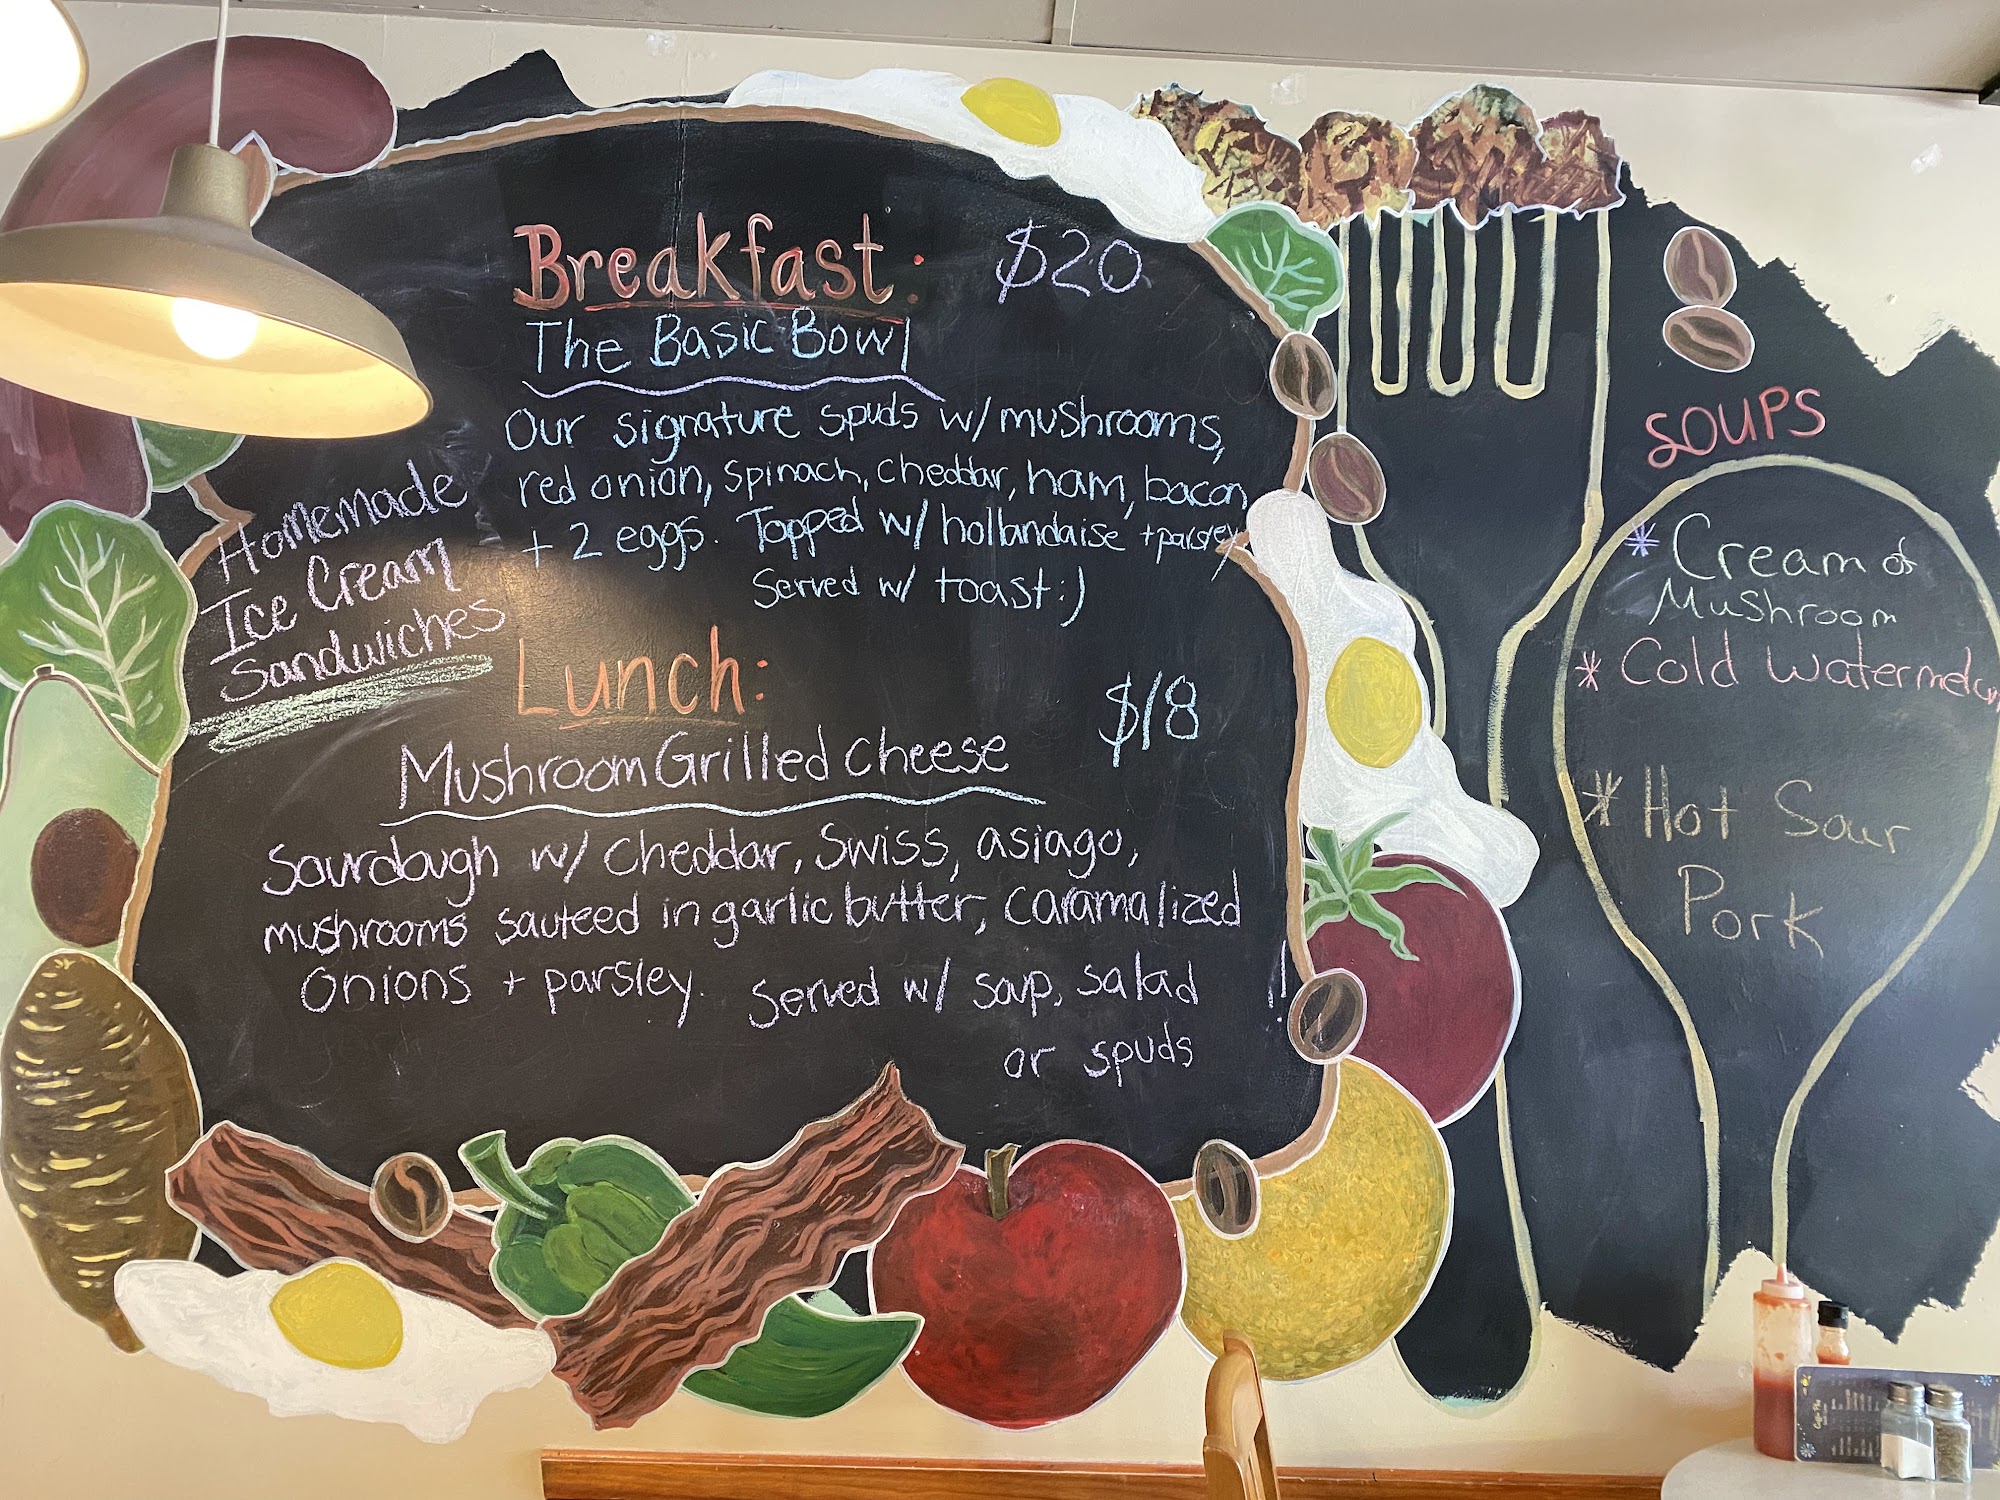 Breakfast: $20
The Basic Bowl
Our signature spuds w/ mushrooms,
red onion, spinach, cheddar, ham, bacon,
+ 2 eggs. Topped w/ hollandaise + parsley
Served w/ toast :)
Homemade
Ice Cream
Sandwiches
Lunch:
$18
Mushroom Grilled Cheese
Sourdough w/ cheddar, Swiss, asiago,
mushrooms sauteed in garlic butter, caramalized
Onions + parsley. Served w/ soup, salad
or spuds
!!
SOUPS
* Cream of
Mushroom
* Cold Watermelon
* Hot Sour
Pork